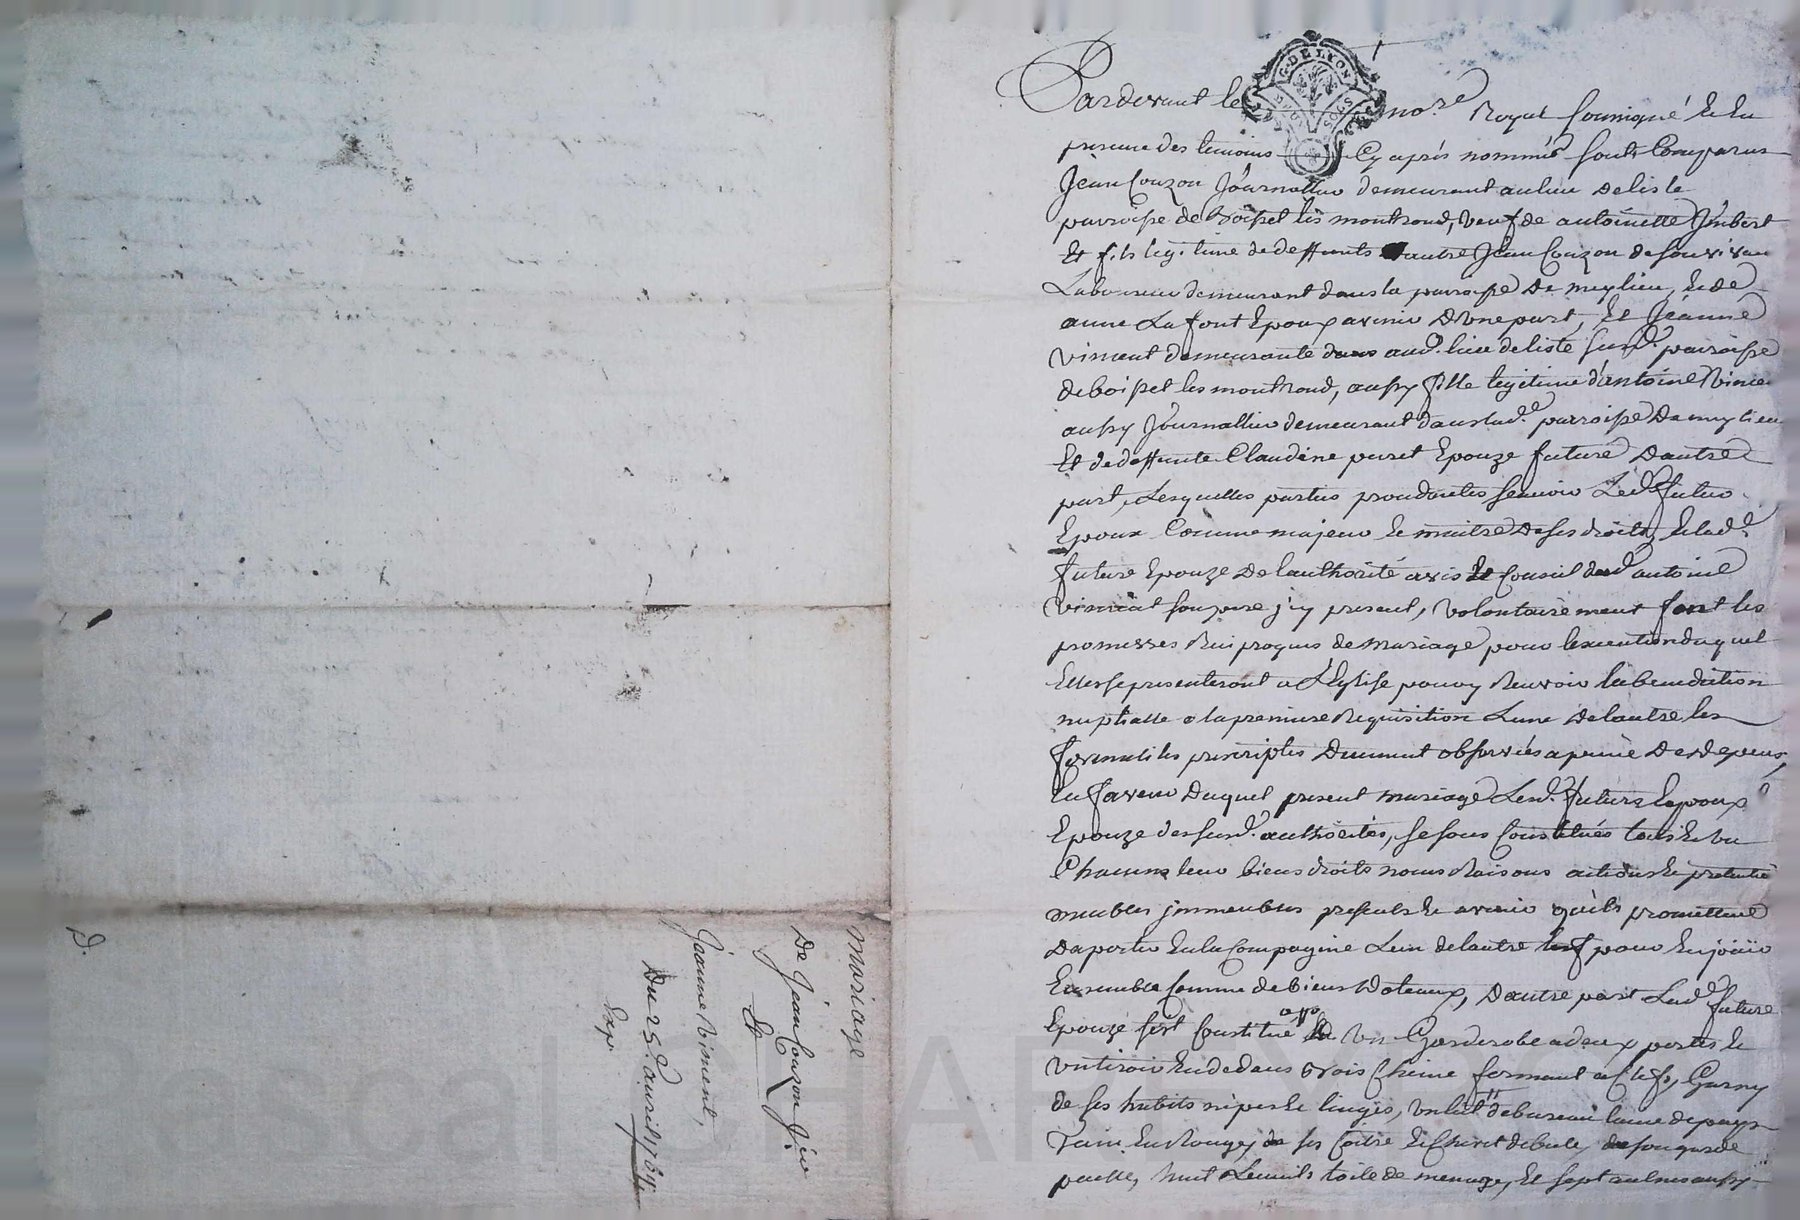 G. DE LYON
DEUX SOLS
Pardevant le no.re Royal soussigné et en
presence des temoins Cy aprés nommés sont Comparus
Jean Couzon Journallier demeurant au lieu de liste
parroisse de Boisset lès montrond, veuf de antoinette Imbert
Et fils legitime de deffunts autre Jean Couzon de son vivan
Laboureur demeurant dans la parroisse De meylieu, et de
anne Lafont Epoux avenir D'une part, Et Jeanne
Vincent demeurante dans aud. lieu de liste susd. parroisse
de boisset les montrond, aussy fille legitime d'antoine Vincen
aussy Journallier demeurant dans lad.e parroisse De meylieu
Et de deffunte Claudine peret Epouze future D'autre
part, Lesquelles parties procedantes scavoir Led. futur
Epoux Comme majeur et maitre De ses droits, et lad.e
future Epouze De l'authorité avis et Conseil dud. antoine
Vincent son pere j'cy present, volontairement font les
promesses Reciproques de mariage pour l'execution duquel
Elles se presenteront a L'Eglise pour y Recevoir la benediction
nuptialle a la premiere Requisition L'une De l'autre les
formalités prescriptes Duement observées a peine De depens,
En faveur Duquel present mariage Lesd. futurs Epoux
Epouze dessusd. authorités, se sont Constitués tous et un
Chacuns leur biens droits noms Raisons actions et pretentio
meubles jmmeubles presents et avenir qu'ils promettent
D'aporter en la Compagnie L'un de l'autre pour En jouir
Ensemble Comme de biens Doteaux, D'autre part Lad.e future
Epouze s'est Constitué un Garderobe a deux portes et
un tiroir En dedans bois Chene fermant a Clefs, Garny
de ses habits nipes et linges, un lit de bureau laine de pays
Taint En Rouge, ses Coitre et Chevet de bale, de son garde
paille, huit Linceuls toile de menage, Et sept aulnes aussy
mariage
De Jean Couzon Jeu
Et
Jeanne Vincent,
Du 25.e avril 1764
Exp.
D.